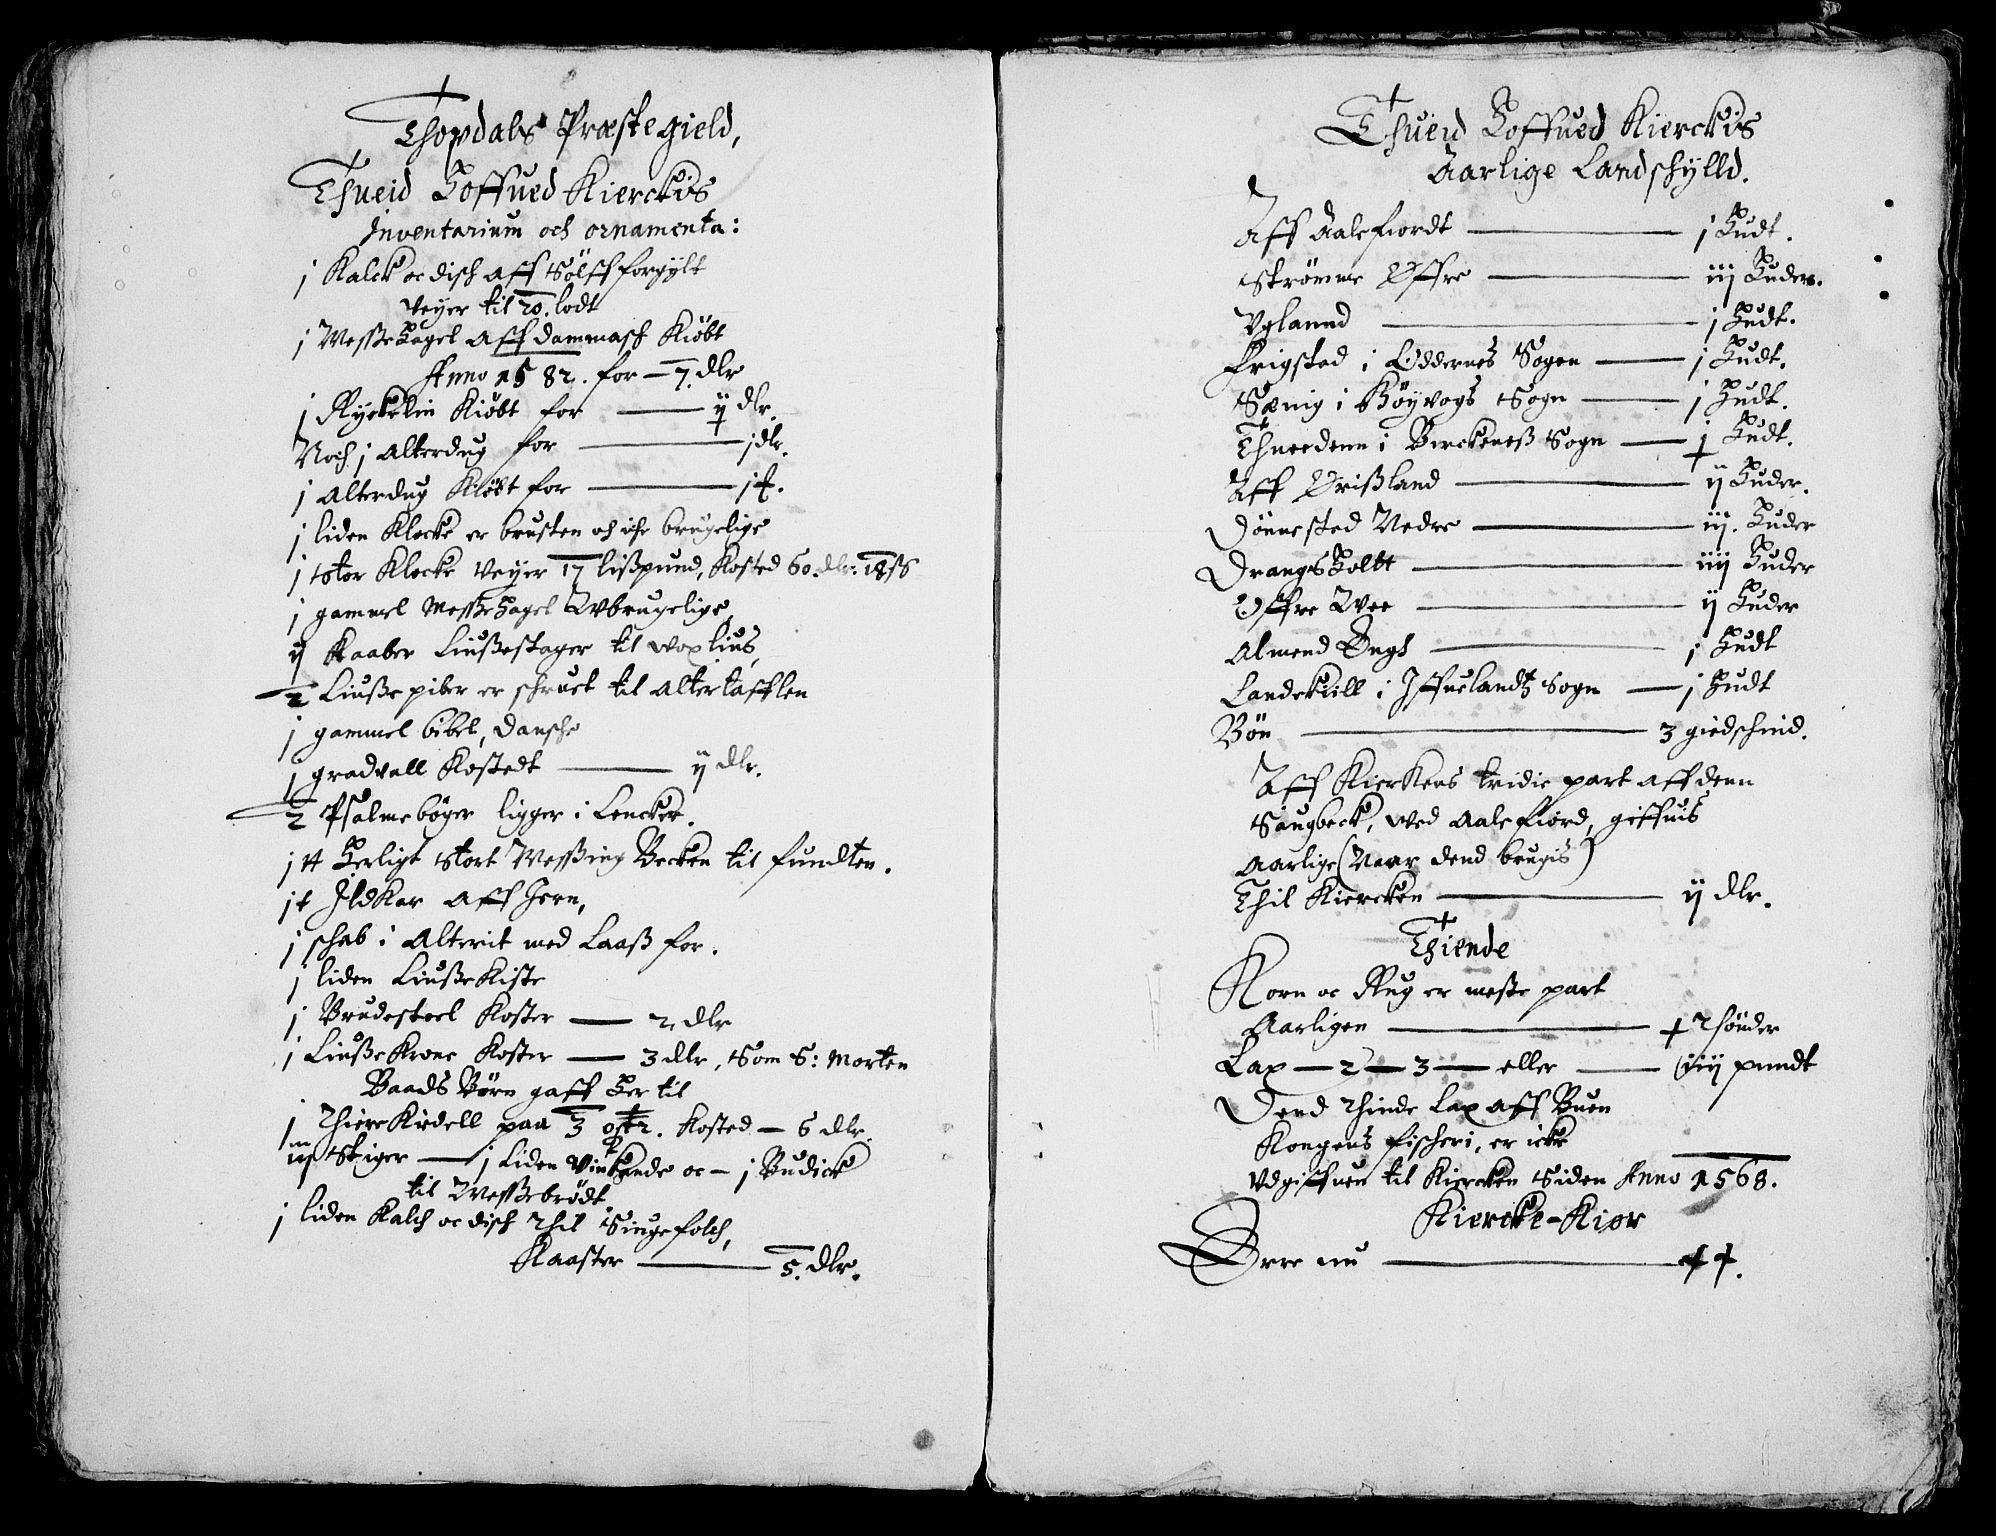 Thopdals Præstegield,
Thueid Hoffued Kierckis
Inventarium och ornamenta:
j Kalck oc disch aff Sölff forgylt
veyer til 20. lodt
j Messe Hagel aff dammasch Kiöbt
Anno 1582. for — 7. dlr
j Ryckelin Kiöbt for — ij dlr.
Noch j Alterdug for — j dlr.
j Alterdug Kiöbt for — j t.
j liden Klocke er brusten och icke brugelige
j stor Klocke veyer 17 lißpund, Kosted 60. dlr:
j gammel Messehagel Wbrugelige
ij Kaaber Liußestager til voxlius,
2 Liuße piber er schruet til Altertafflen
j gammel bibel, Dansche
j gradvall Kostedt — ij dlr.
2 Psalmebøger ligger i Lencker.
j tt Herligt stort Messing Becken til fundten.
j t Ildkar aff Jern,
j schab i Alterit med Laaß for.
j liden LiußeKiste
j Brudestoel Koster — 2 dlr
j LiußeKrone Koster — 3 dlr, Som S: Morten
Baads Börn gaff her til
j ThiereKiedell paa 3 Kosted — 6 dlr.
iij Stiger — j Liden Vinkande oc — j Budick
til Messebrödt.
j liden Kalch oc disch Thil Siugefolch,
Kaaster — 5. dlr.
Thueid Hoffued Kierckis
Aarlige Landschylld.
Aff Aalefiordt — j Hudt.
Strömme Øffre — iij Huder.
Vglannd — j Hudt.
Frigstad i Oddernes Sogen — j Hudt.
Sænig i Höyvogs Sogn — j Hudt.
Thueedenn i Birckeneß Sogn — j Hudt.
Aff Brißland — ij Huder.
Dönnestad Nedre — iij. Huder
DrangsHoltt — iiij Huder
Øffre Wee — ij Huder
Almend Engh — j Hudt
Landekiill i Iffuelandtz Sogn — j Hudt
Bön — 3 giedschind.
Aff Kierkens tridie part aff denn
Saugbeck, wed Aalefiord, giffuis
Aarlige (Naar dend brugis)
Thil Kiercken — ij dlr.
Thiende
Korn oc Rug er meste part
Aarligen — t Thönder
Lax — 2 — 3 — eller — iiij pundt
Dend Thinde Lax aff Buen
Kongens fischeri, er icke
Vdgiffuen til Kiercken Siden Anno 1568.
Kiercke-Kiör
Erre nu —